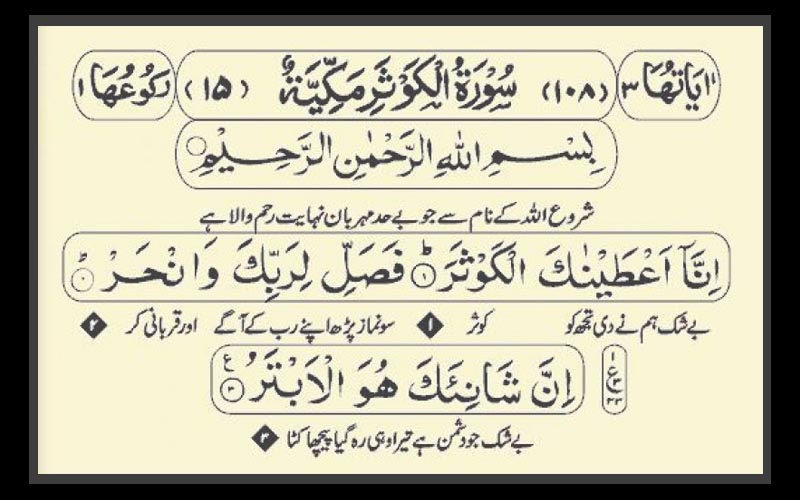 اٰيَاتُهَا ٣ (١٠٨) سُوْرَةُ الْكَوْثَرِ مَكِّيَّةٌ (١٥) رَكُوْعُهَا ١
بِسْمِ اللهِ الرَّحْمٰنِ الرَّحِيْمِ
شروع اللہ کے نام سے جو بے حد مہربان نہایت رحم والا ہے
اِنَّاۤ اَعْطَيْنٰكَ الْكَوْثَرَ ؕ‏ ١ فَصَلِّ لِرَبِّكَ وَانْحَرْ ؕ
بے شک ہم نے دی تجھ کو کوثر ١ سو نماز پڑھ اپنے رب کے آگے اور قربانی کر ٢
اِنَّ شَانِئَكَ هُوَ الْاَبْتَرُ ٣ ع
بے شک جو دشمن ہے تیرا وہی رہ گیا پیچھا کٹا ٣